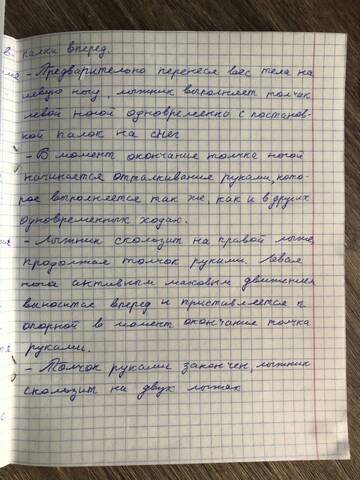 палки вперед.
- Предварительно перенеся вес тела на
левую ногу, лыжник выполняет толчок
левой ногой одновременно с постанов-
кой палок на снег
- В момент окончание толчка ногой
начинается отталкивание руками, кото-
рое выполняется так же, как и в других
одновременных ходах.
- Лыжник скользит на правой лыже,
продолжая толчок руками. Левая
нога активным маховым движением
выносится вперед и приставляется к
опорной в момент окончание толчка
руками.
- Толчок руками закончен, лыжник
скользит на двух лыжах